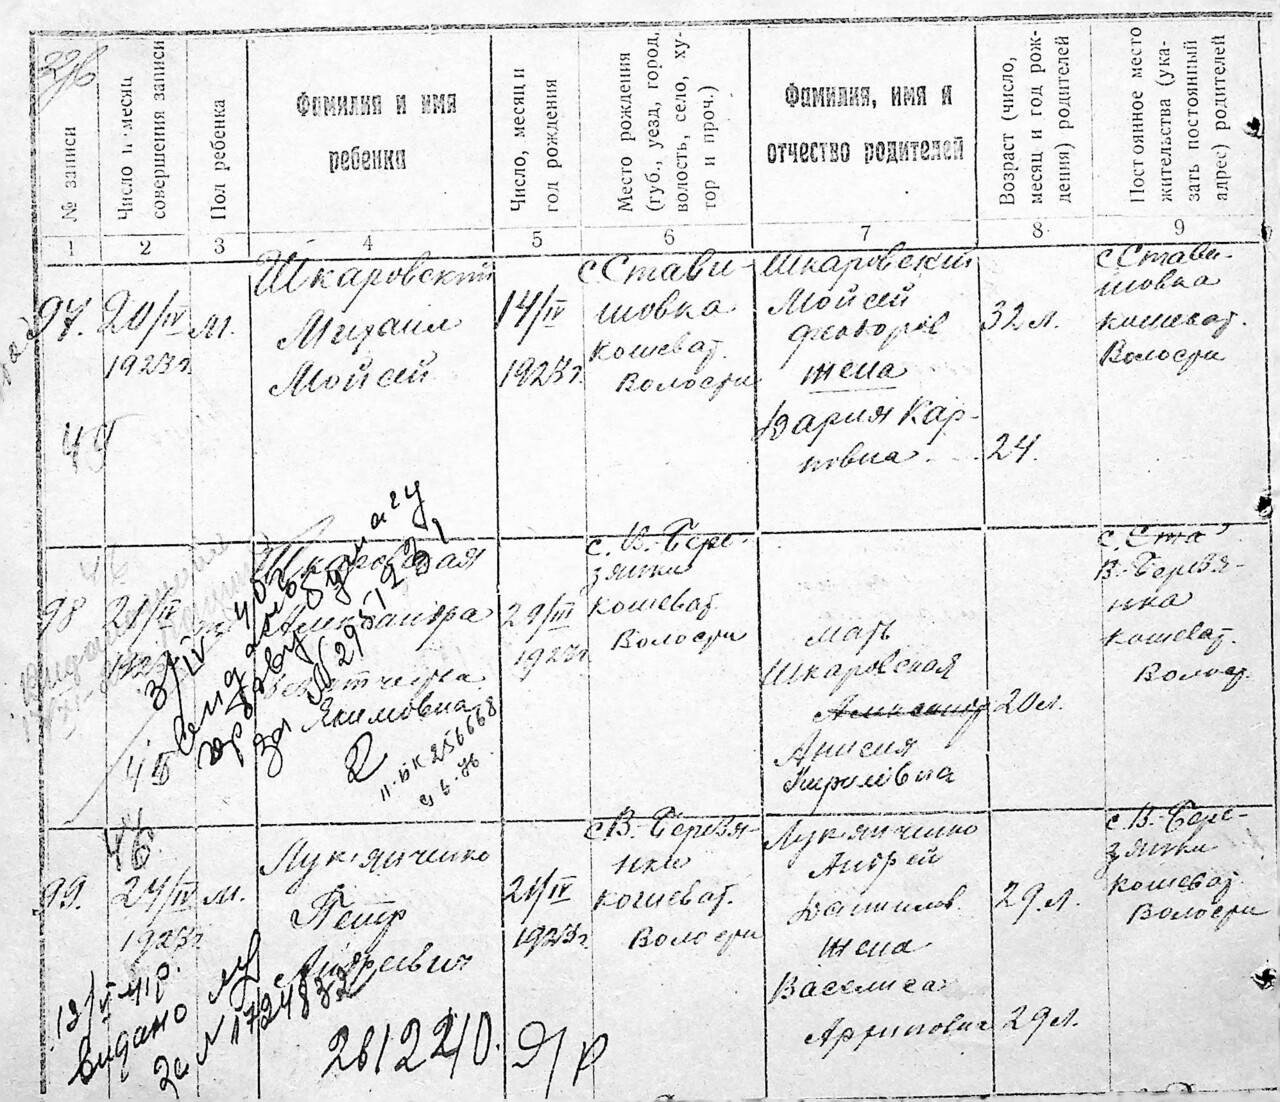 226
№ записи
Число и месяц
совершения записи
Пол ребенка
Фамилия и имя
ребенка
Число, месяц и
год рождения
Место рождения
(губ., уезд, город,
волость, село, ху-
тор и проч.)
Фамилия, имя и
отчество родителей
Возраст (число,
месяц и год рож-
дения) родителей
Постоянное место
жительства (ука-
зать постоянный
адрес) родителей
1 2 3 4 5 6 7 8 9
97.
20/IV
1923 г.
м.
Шкаровский
Михаил
Мойсей
14/IV
1923 г.
с. Стави-
шовка
Кошеват.
Волости
Шкаровский
Мойсей
Федоров
жена
Дария Кар-
повна
32 л.
24.
с. Стави-
шовка
Кошеват.
Волости
45
98
21/IV
1923
Шкаровская
Александра
Якимовна
29/III
1923 г.
с. В.-Бере-
зянки
Кошеват.
Волости
мать
Шкаровская
Анисия
Кириловна
20 л.
с. Ста
В.-Березя-
нка
Кошеват.
Волост.
3/IV 40 г.
за № 295123
2
II-БК 256668
46
99.
24/IV
1923 г.
м.
Лукянченко
Петр
Андреевич
21/IV
1923 г.
с. В.-Березя-
нки
Кошеват.
Волости
Лукянченко
Андрей
Данилов.
жена
Василиса
29 л.
29 л.
с. В.-Бере-
зянки
Кошеват.
Волости
видано
за №